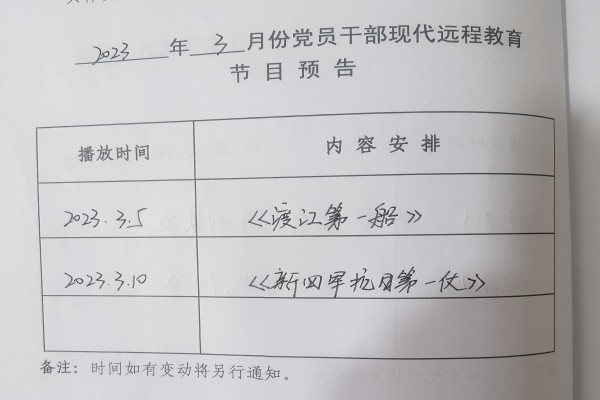 2023年3月份党员干部现代远程教育
节目预告
播放时间 内容安排
2023.3.5 《渡江第一船》
2023.3.10 《新四军抗日第一仗》
备注：时间如有变动将另行通知。